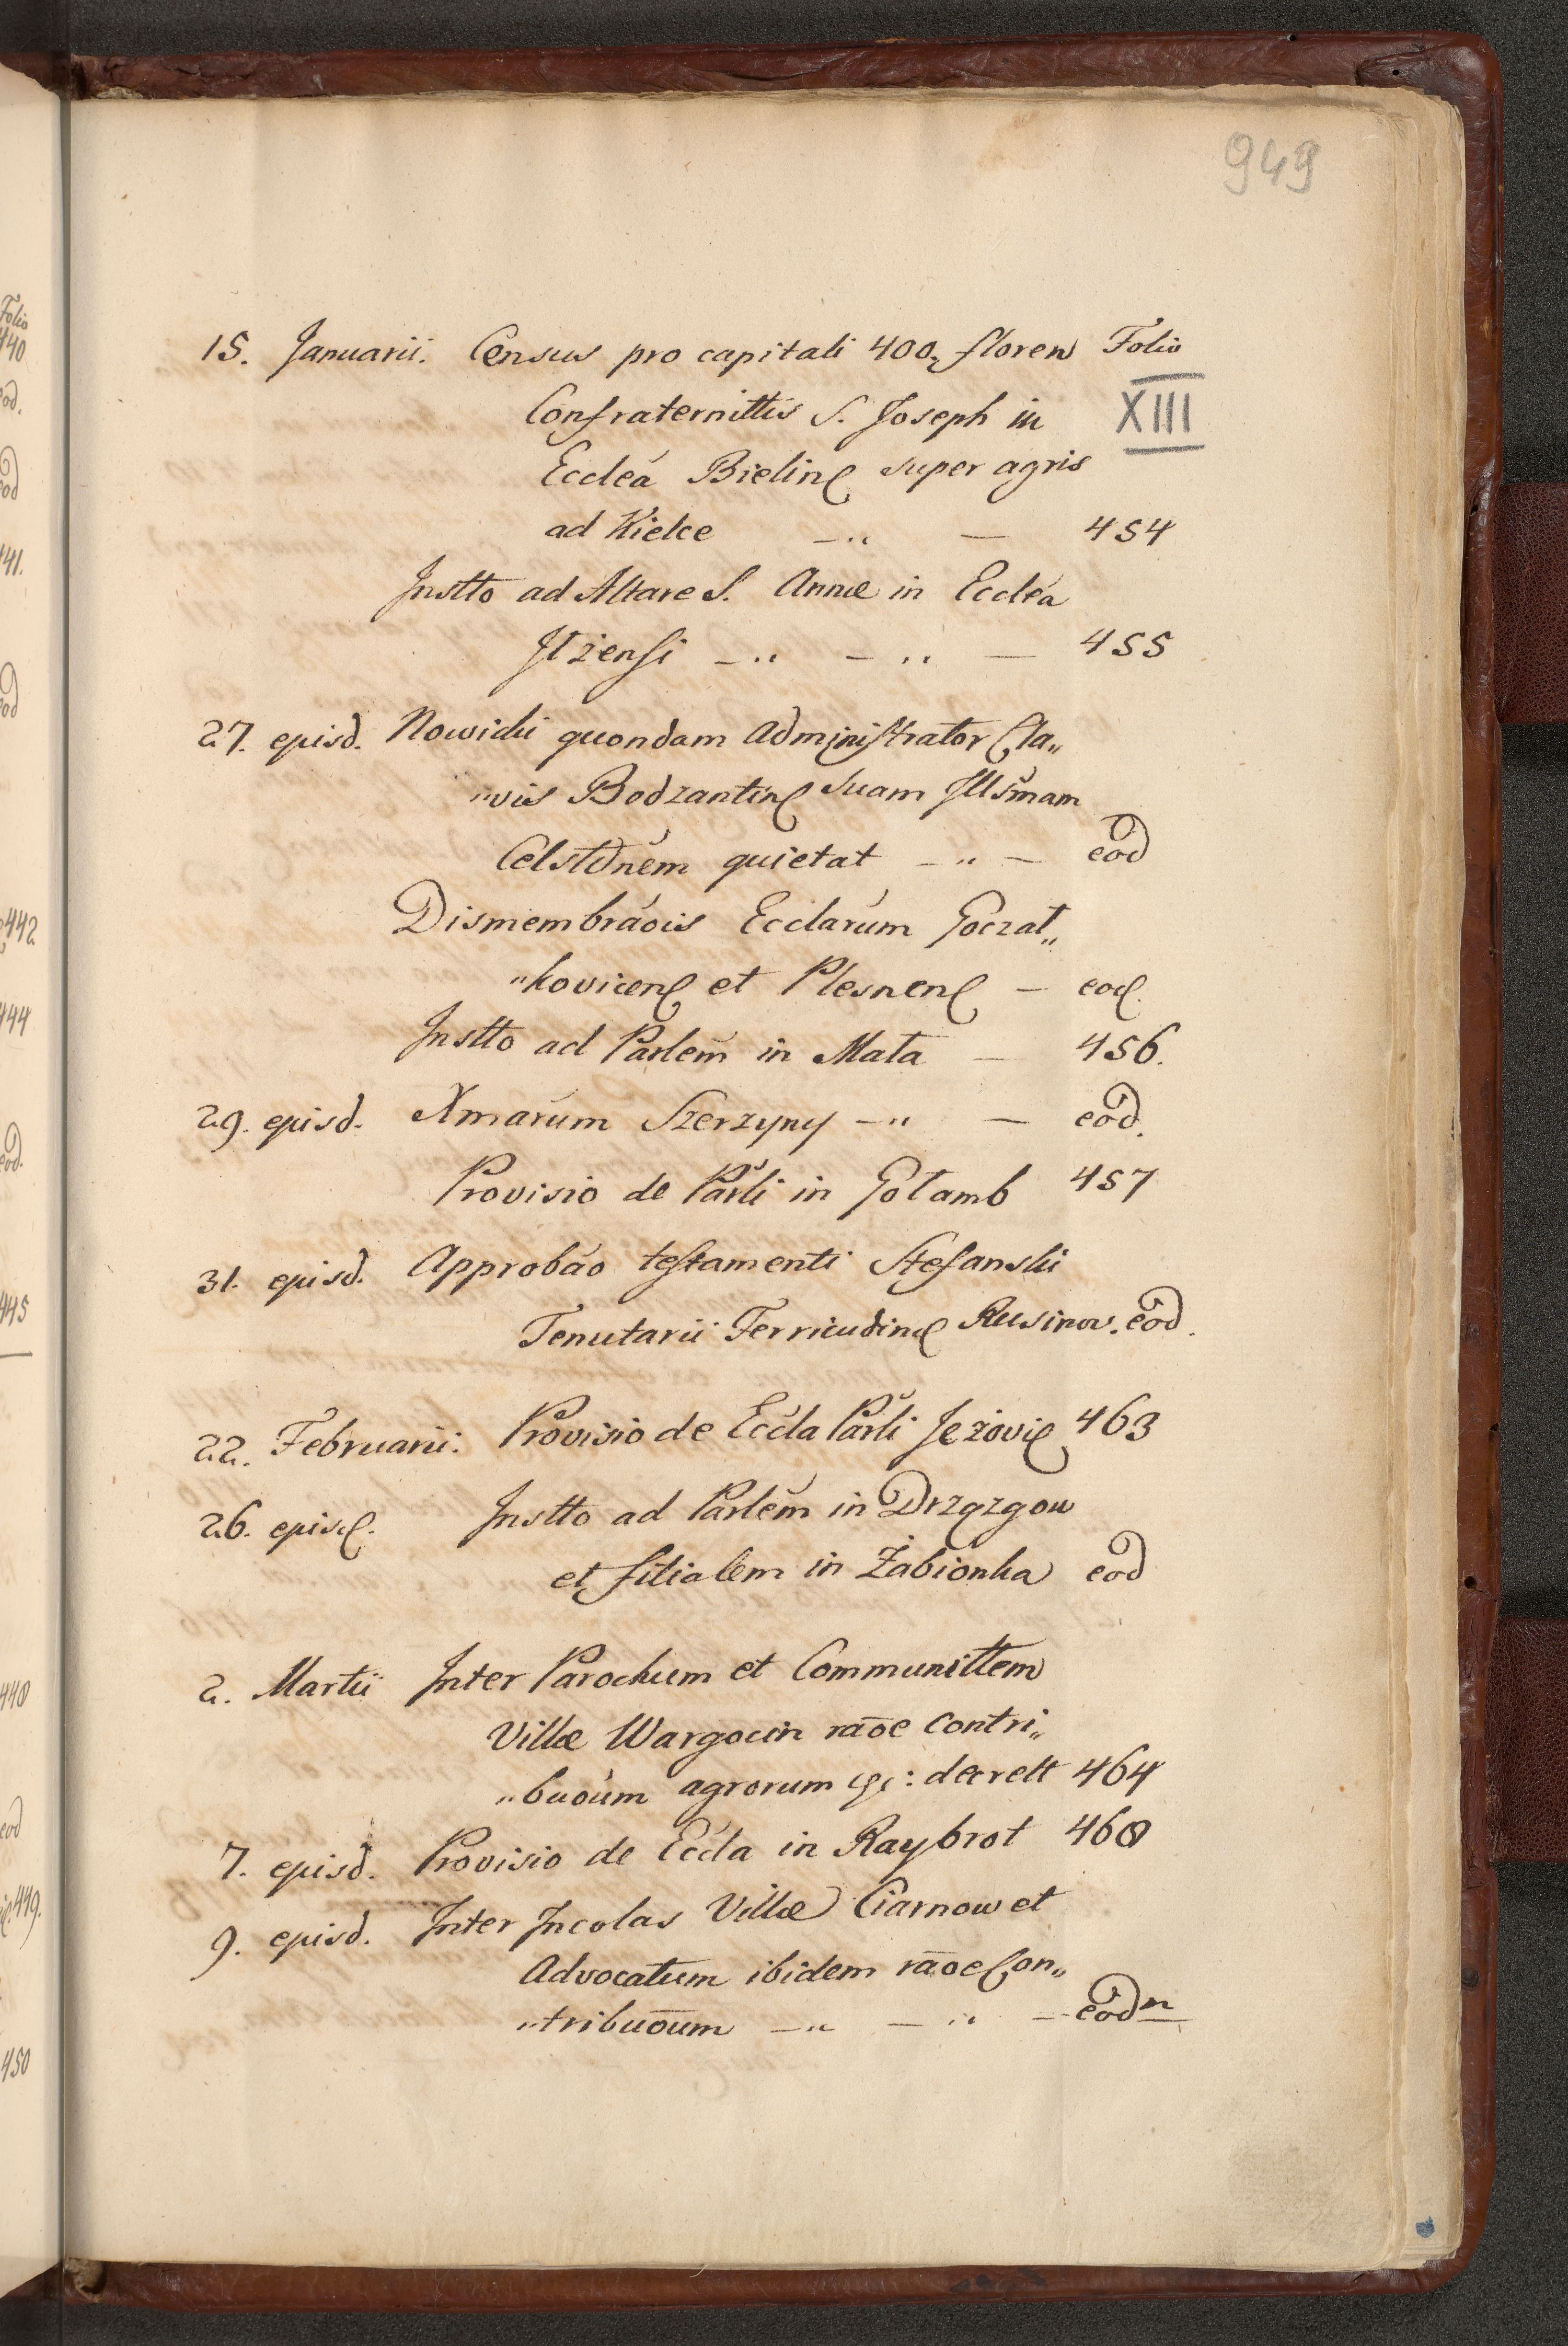 949
15. Januarii. Census pro capitali 400. floren Folio
Confraternittis S. Joseph in XIII
Eccleá Bielin super agris
ad Kielce — 454
Instto ad Altare S. Annæ in Eccleá
Iłżensi — — — 455
27. episd. Nowicki quondam Administrator Cla„
„vis Bodzantin suam Illśmam
Celstdném quietat — — eod
Dismembráois Ecclarúm Poczał„
„kovicen et Plesnen — eod.
Instto ad Parlem in Mała — 456.
29. episd. Xmarúm Szerzyny — — eod.
Provisio de Parli in Gołamb 457
31. episd. Approbáo testamenti Stefanski
Tenutarii Ferricudin Rusinov. eod.
22. Februarii. Provisio de Eccla Parli Jeżovi 463
26. episd. Instto ad Parlem in Drzązgow
et filialem in Żabionka eod
2. Martii Inter Parochum et Communittem
Villæ Wargocin raoe contri„
„buoum agrorum : decrett 464
7. episd. Provisio de Eccla in Raybrot 468
9. episd. Inter Incolas Villæ Ciarnow et
Advocatum ibidem raoe Con„
„tribuoum — — — eodm
Folio
440
eod.
eod
441.
eod
442
444
eod.
445
448
eod
449.
450